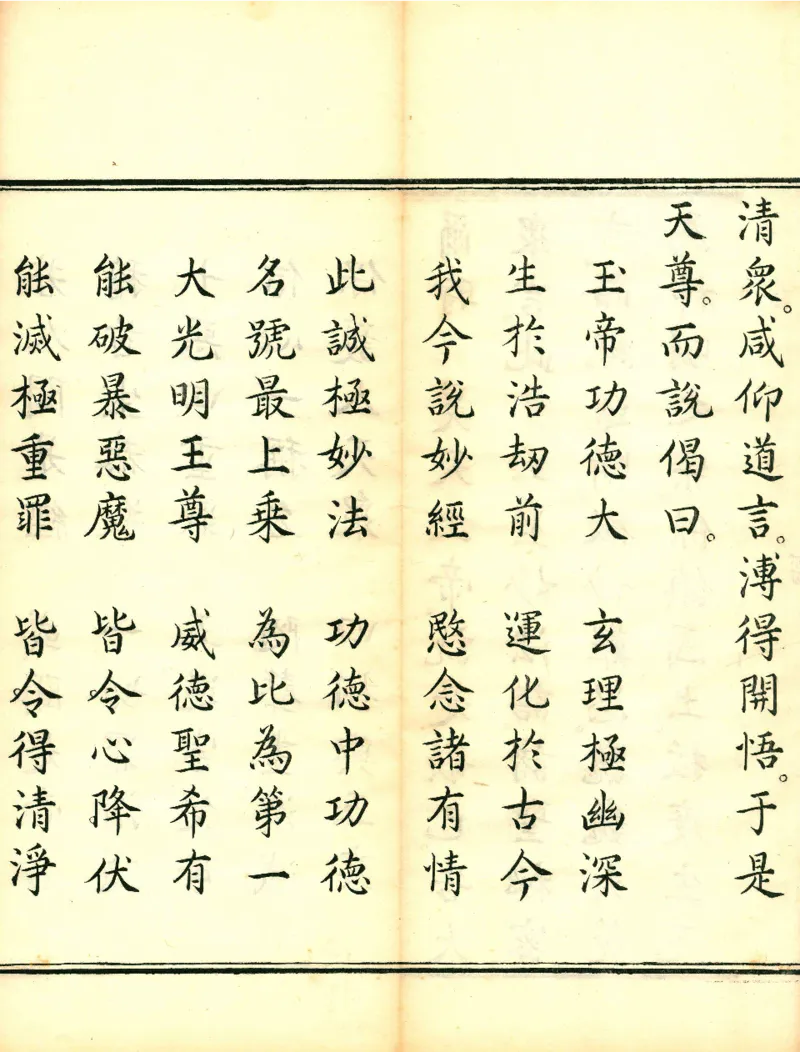 清眾。咸仰道言。溥得開悟。于是
天尊。而說偈曰。
玉帝功德大　玄理極幽深
生於浩劫前　運化於古今
我今說妙經　愍念諸有情
此誠極妙法　功德中功德
名號最上乘　為比為第一
大光明王尊　威德聖希有
能破暴惡魔　皆令心降伏
能滅極重罪　皆令得清淨